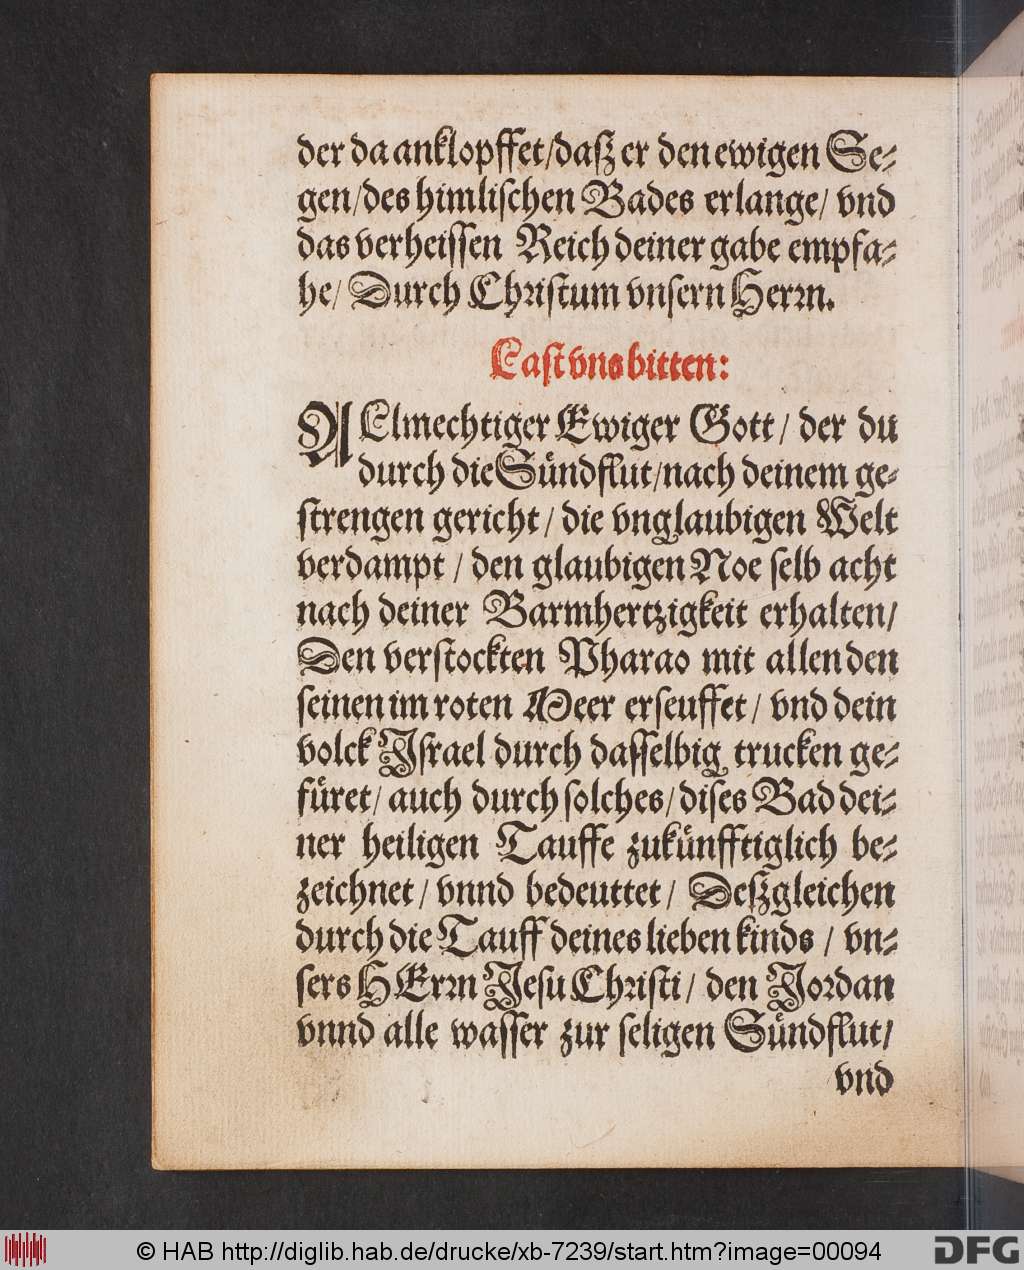 der da anklopffet/daſz er den ewigen Se⸗
gen/des himliſchen Bades erlange/ vnd
das verheiſſen Reich deiner gabe empfa⸗
he/ Durch Chriſtum vnſern Herrn.
Laſt vns bitten:
ALlmechtiger Ewiger Gott/ der du
durch die Sündflut/nach deinem ge⸗
ſtrengen gericht/ die vnglaubigen Welt
verdampt/ den glaubigen Noe ſelb acht
nach deiner Barmhertzigkeit erhalten/
Den verſtockten Pharao mit allen den
ſeinen im roten Meer erſeuffet/ vnd dein
volck Jſrael durch daſſelbig trucken ge⸗
füret/ auch durch ſolches/ diſes Bad dei⸗
ner heiligen Tauffe zukünfftiglich be⸗
zeichnet/ vnnd bedeuttet/ Deſzgleichen
durch die Tauff deines lieben kinds/ vn⸗
ſers HErrn Jeſu Chriſti/ den Jordan
vnnd alle waſſer zur ſeligen Sündflut/
vnd
© HAB http://diglib.hab.de/drucke/xb-7239/start.htm?image=00094
DFG